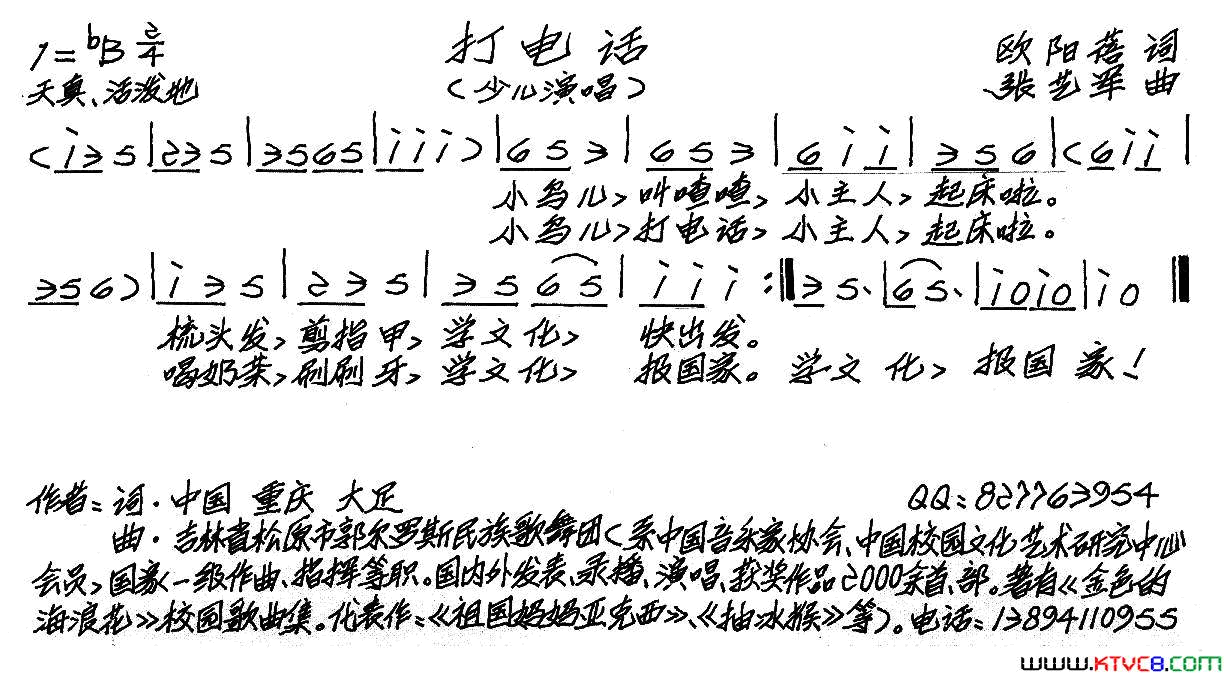 1=bB 2/4 打电话 欧阳蓓 词
天真、活泼地 （少儿演唱） 张艺军 曲
（i 3 5｜2 3 5｜3 5 6 5｜i i i）｜6 5 3｜6 5 3｜6 i i｜3 5 6｜（6 i i｜
小鸟儿，叫喳喳，小主人，起床啦。
小鸟儿，打电话，小主人，起床啦。
3 5 6）｜i 3 5｜2 3 5｜3 5 6 5｜i i i :‖3 5、｜6 5、｜i 0 i 0｜i 0 ‖
梳头发，剪指甲，学文化，快出发。
喝奶茶，刷刷牙，学文化，报国家。学文化，报国家！
作者：词·中国 重庆 大足 QQ：827763954
曲·吉林省松原市郭尔罗斯民族歌舞团（系中国音乐家协会、中国校园文化艺术研究中心
会员，国家一级作曲、指挥等职。国内外发表、录播、演唱、获奖作品2000余首、部。著有《金色的
海浪花》校园歌曲集。代表作：《祖国妈妈亚克西》、《抽冰猴》等）。电话：13894110955
www.KTVC8.com